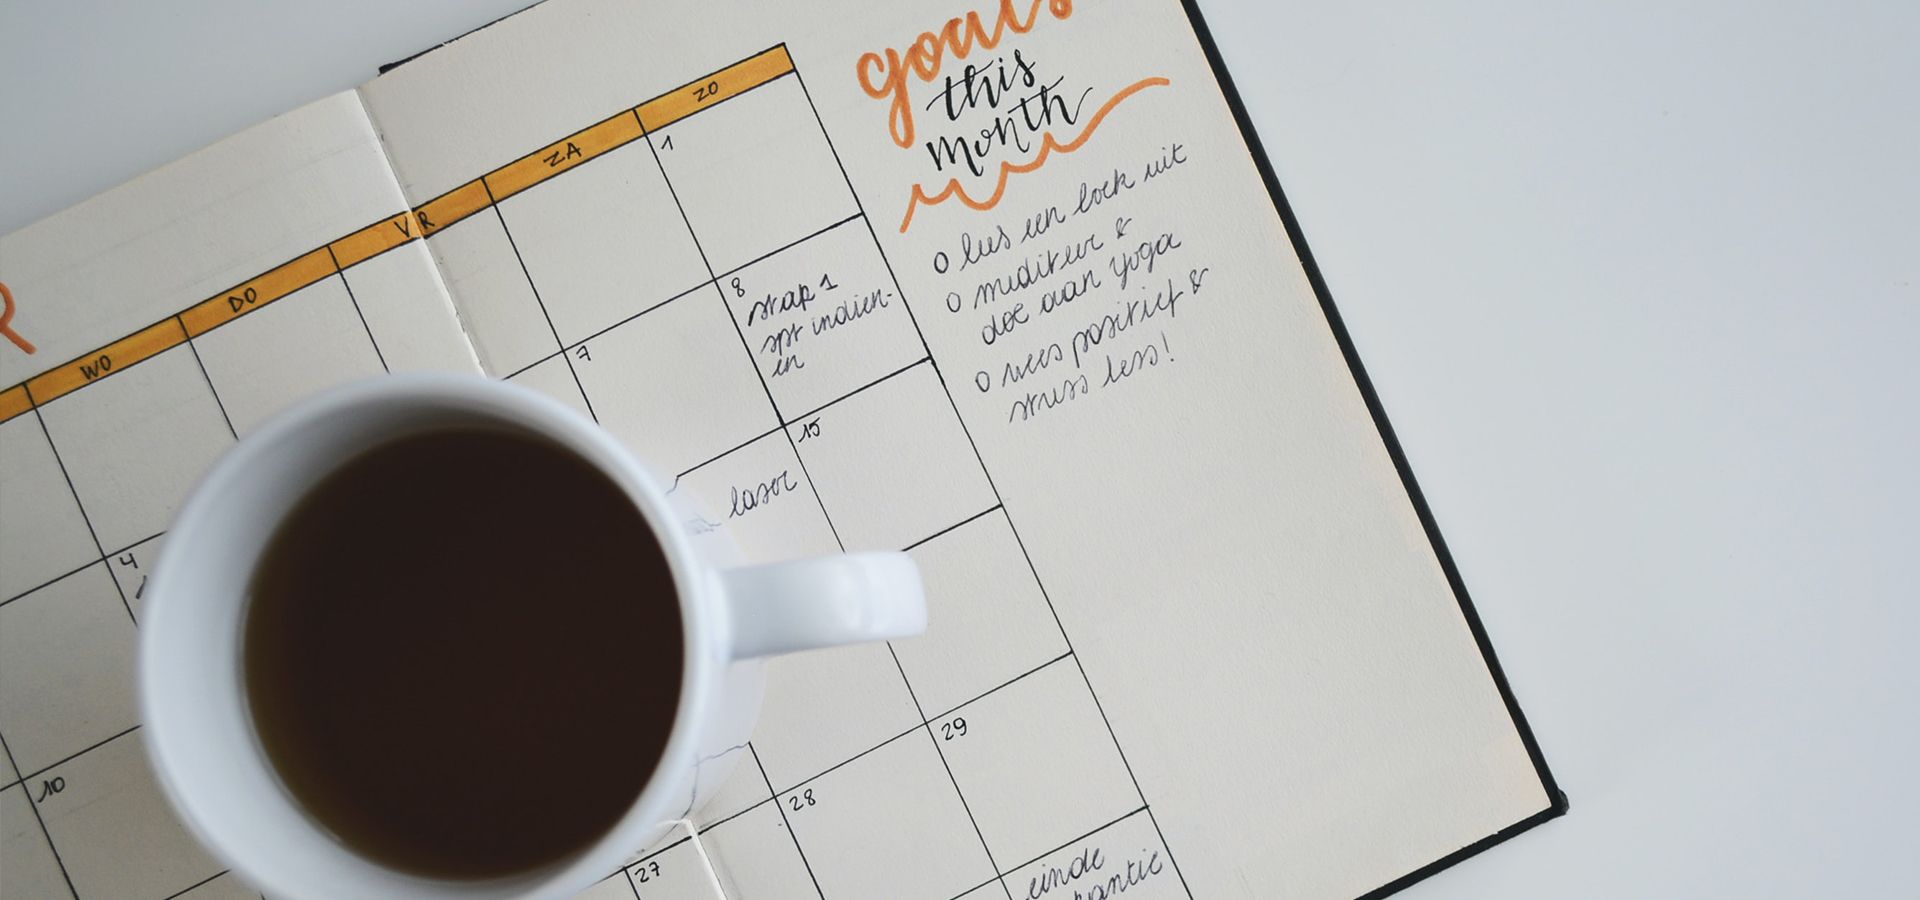 goals
this
month
o lees een boek uit
o mediteer &
doe aan yoga
o wees positief &
stress less!
R
WO DO VR ZA ZO
1
4 7 8
stap 1
spr indien-
en
10 15
laser
27 28 29
einde